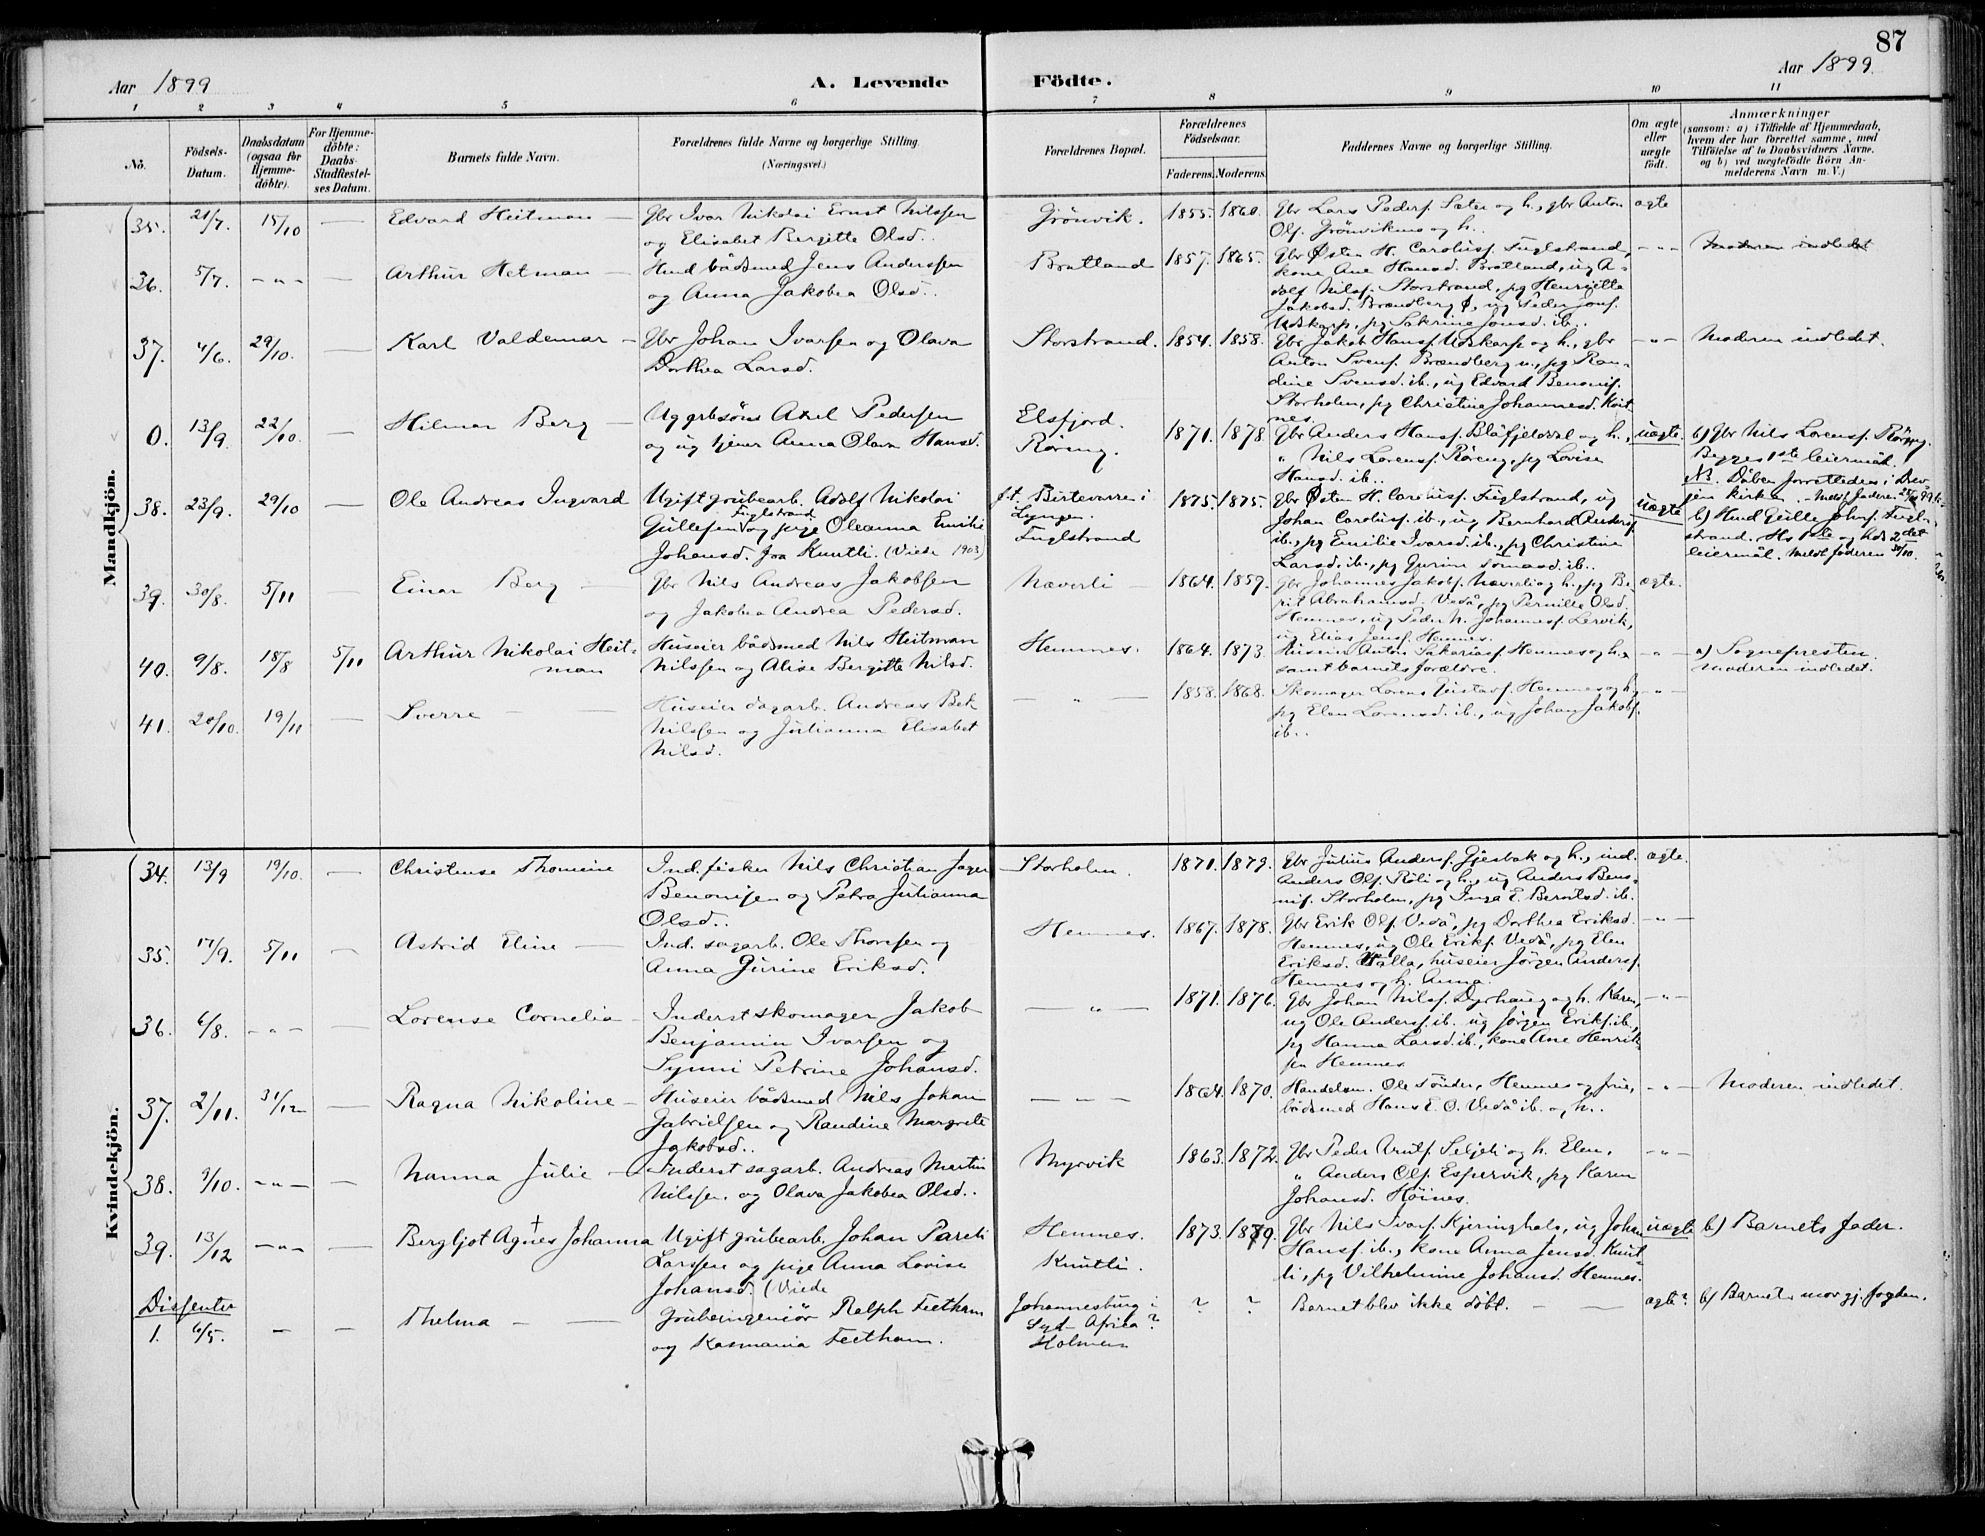 87
Aar 1899
A. Levende Födte.
Aar 1899
1 2 3 4 5 6 7 8 9 10 11
No.
Födsels-Datum.
Daabsdatum (ogsaa for Hjemme-döbte).
For Hjemme-döbte: Daabs-Stadfæstelses Datum.
Barnets fulde Navn.
Forældrenes fulde Navne og borgerlige Stilling.
(Næringsvei.)
Forældrenes Bopæl.
Forældrenes Födselsaar.
Faderens. Moderens.
Faddernes Navne og borgerlige Stilling.
Om ægte eller uægte födt.
Anmærkninger
(saasom: a) i Tilfælde af Hjemmedaab,
hvem der har forrettet samme, med
Tilföielse af to Daabsvidners Navne,
og b) ved uægtefödte Börn An-
melderens Navn m. V.)
Mandkjön.
35. 21/7. 15/10 — Edvard Heitman — Gbr Ivar Nikolai Ernst Nilssen
og Elisabet Bergitte Olsd..
Grönvik. 1855. 1860. Gbr Lars Peders. Sæter og h., gbr Anton
Ols. Grönvikmo og h..
ægte
36. 5/7. — " — — Arthur Hetman — Husd bådsmed Jens Anderssen
og Anna Jakobea Olsd..
Bratland 1857. 1865. Gbr Østen H. Carolius. Fuglstrand,
kone Ane Hansd. Bratland, ug A-
dolf Nils. Storstrand, pg Henriette
Jakobsd. Brændberg ø, ug Peder Jons.
Utskarp, pg Sakrine Jonsd. ib..
— " — Moderen indledet
37. 4/6. 29/10. — Karl Valdemar — Gbr Johan Ivarsen og Olava
Dorthea Larsd.
Storstrand. 1854. 1858. Gbr Jakob Hans. Utskarp og h., gbr
Anton Svens. Brændberg n., pg Ran-
dine Svensd. ib., ug Edvard Benonis.
Storholm, pg Christine Johannesd. Kvit
nes.
— " — Moderen indledet.
0. 13/9. 22/10. — Hilmar Berg — Ug grbsöns Axel Pedersen
og ug tjener Anna Olava Hansd.
Elsfjord.
Röreng.
1871. 1878 Gbr Anders Hans. Blåfjeldal og h.,
" Nils Lorens. Röreng, pg Lovise
Hansd. ib..
uægte. b) Gbr Nils Lorens. Röreng.
Begges 1ste leiermål.
NB. Dåben forrettedes i Drev-
jen kirken.
38. 23/9. 29/10 — Ole Andreas Ingvard Ugift grubearb. Adolf Nikolai
Gullesen Fuglstrand og pige Oleanna Emilie
Johansd. fra Knutli. (Viede 1903)
f.t. Birtevarre i
Lyngen.
Fuglstrand
1875. 1875. Gbr Østen H. Carolius. Fuglstrand, ug
Johan Carolius. ib., ug Bernhard Anders.
ib., pg Emilie Ivarsd. ib., pg Christine
Larsd. ib., pg Gurine Tomasd. ib..
uægte b) Husd Gulle Johns. Fugl-
strand. Hs 1ste og hds 2det
leiermål. Meldt faderen 30/10.
39. 30/8. 5/11 — Einar Berg — Gbr Nils Andreas Jakobsen
og Jakobea Andrea Pedersd.
Næverli 1864. 1859. Gbr Johannes Jakobs. Næverli og h., pg Be-
rit Abrahamsd. Vedå, pg Pernille Olsd.
Hemnes, ug Peder N. Johannes. Lervik,
ug. Elias Jens. Hemnes.
ægte.
40. 9/8. 18/8 5/11 Arthur Nikolai Heit-
man
Huseier bådsmed Nils Heitman
Nilssen og Alise Bergitte Nilsd.
Hemnes. 1864. 1873. Huseier Anton Sakarias. Hemnes og h.
samt barnets forældre.
— " — a) Sognepresten
Moderen indledet.
41. 20/10. 19/11 — Sverre — — Huseier dagarb. Andreas Bek
Nilssen og Julianna Elisabet
Nilsd.
— " — 1858. 1868. Skomager Lorens Gustavs. Hemnes og h.,
pg Elen Lorensd. ib., ug Johan Jakobs.
ib..
— " —
Kvindekjön.
34. 13/9 19/10. — Christense Thomine Ind. fisker Nils Christian Jager
Benonisen og Petra Julianna
Olsd..
Storholm. 1871. 1879. Gbr Julius Anders. Gjesbak og h., ind.
Anders Ols. Röli og h., ug Anders Beno-
nis. Storholm, pg Inga E. Berntsd. ib.
ægte.
35. 17/9. 5/11 — Astrid Eline — Ind. sagarb. Ole Thoresen og
Anna Gurine Eriksd.
Hemnes. 1867. 1878. Gbr Erik Ols. Vedå, pg Dorthea Eriksd.
Hemnes, ug Ole Eriks. Vedå, pg Elen
Eriksd. Valla, huseier Jörgen Anders.
Hemnes og h. Anna.
— " —
36. 6/8. — " — — Lorense Cornelia — Inderst skomager Jakob
Benjamin Ivarsen og
Synni Petrine Johansd.
— " — 1871. 1876. Gbr Johan Nils. Dyrhaug og h. Karen,
ug Ole Anders. ib. ug Jörgen Eriks. ib.,
pg Hanna Larsd. ib., kone Ane Henrik-
sen Hemnes
— " —
37. 2/11. 31/12 — Ragna Nikoline — Huseier bådsmed Nils Johan
Gabrielsen og Randine Margrete
Jakobsd..
— — — 1864. 1870. Handelsm. Ole Tönder, Hemnes og frue,
bådsmed Hans E. O. Vedå ib. og h..
— " — Moderen indledet.
38. 9/10. — " — — Nanna Julie — Inderst sagarb. Andreas Martin
Nilssen og Olava Jakobea Olsd..
Myrvik 1863. 1872. Gbr Peder Arnts. Seljeli og h. Elen,
" Anders Ols. Espervik, pg Karen
Johansd. Höines.
— " —
39. 13/12 — " — — Bergljot Agnes † Johanna Ugift grubearb. Johan Pareli
Larssen og pige Anna Lovise
Johansd. (Viede
Hemnes.
Knutli.
1873. 1879. Gbr Nils Ivars. Kjeringhals, ug Johan
Hans. ib., kone Anna Jensd. Knut-
li, pg Vilhelmine Johansd. Hemnes.
uægte b) Barnets fader.
Dissenter
1. 6/5. — — Thelma — — Grubeingeniör Ralph Feetham
og Kasmania Feetham.
Johannesburg i
Syd-Africa?
Holmen
? ? Barnet blev ikke döbt. — —
ægte? b) Barnets mor gj. fogden.